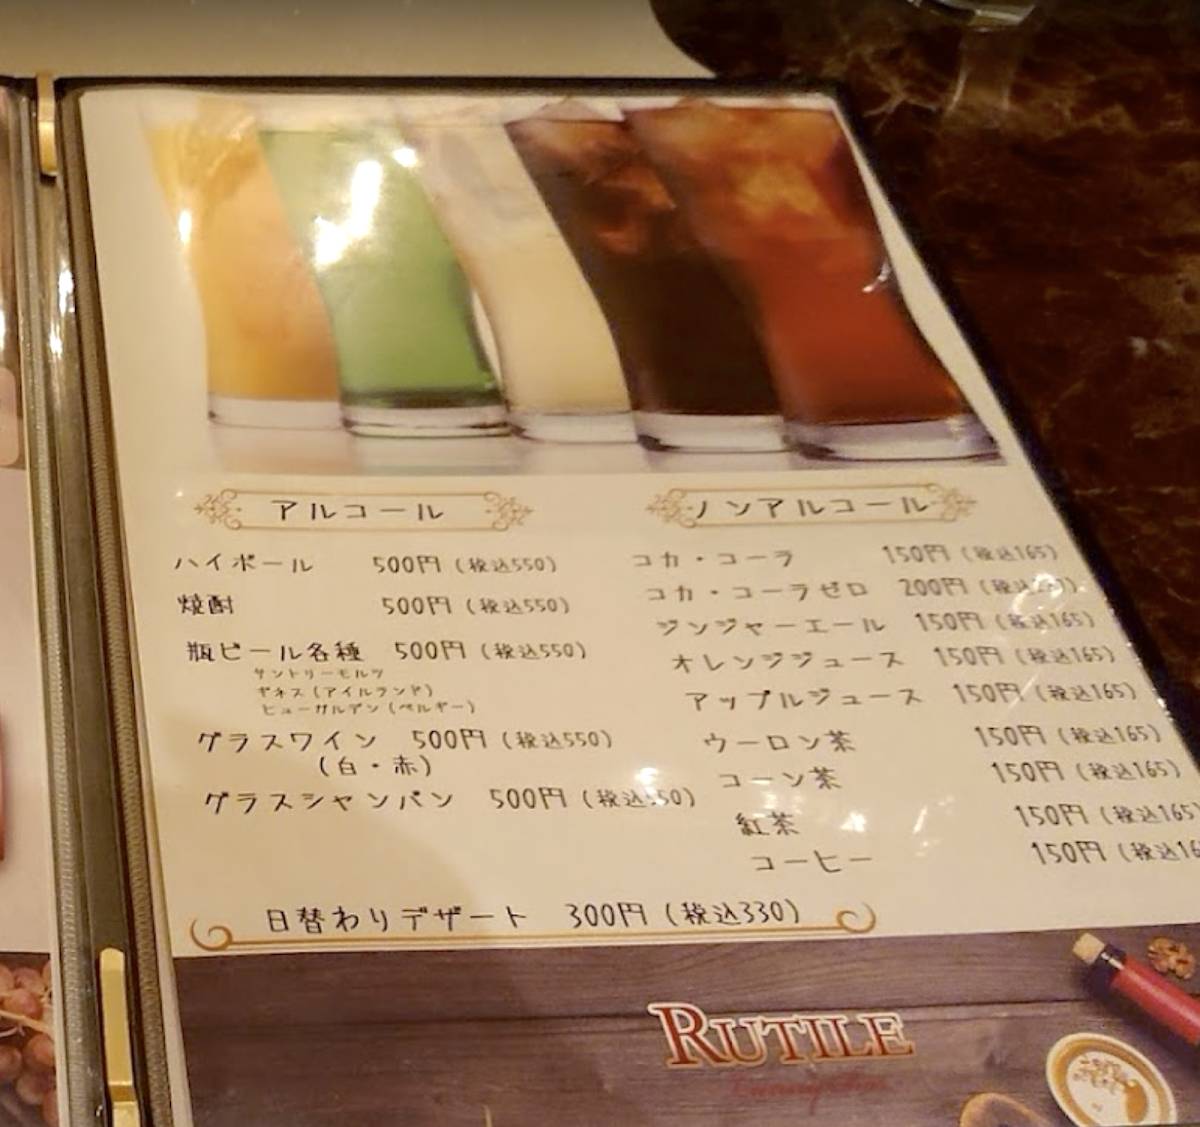 アルコール
ハイボール 500円(税込550)
焼酎 500円(税込550)
瓶ビール各種 500円(税込550)
サントリーモルツ
ギネス(アイルランド)
ヒューガルデン(ベルギー)
グラスワイン 500円(税込550)
(白・赤)
グラスシャンパン 500円(税込550)
ノンアルコール
コカ・コーラ 150円(税込165)
コカ・コーラゼロ 200円(税込
ジンジャーエール 150円(税込165)
オレンジジュース 150円(税込165)
アップルジュース 150円(税込165)
ウーロン茶 150円(税込165)
コーン茶 150円(税込165)
紅茶 150円(税込165
コーヒー 150円(税込16
日替わりデザート 300円(税込330)
RUTILE